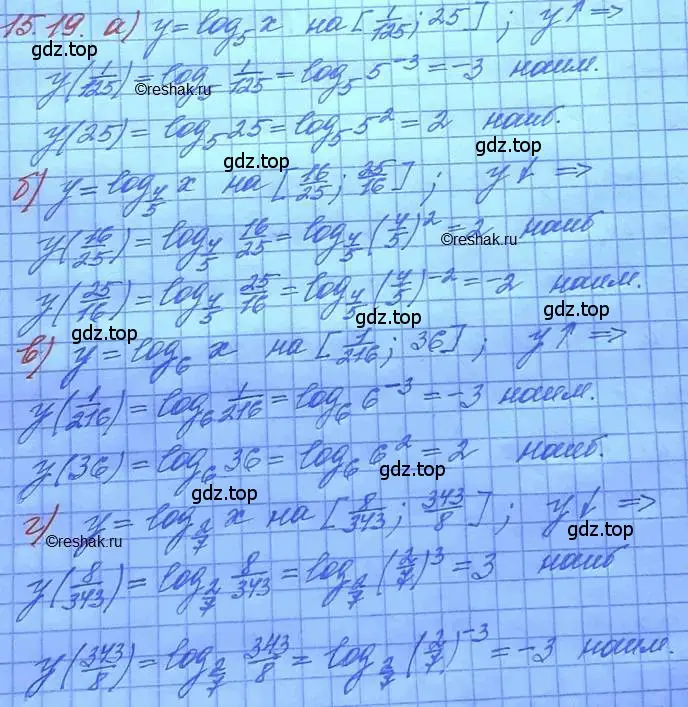 15.19. а) y = log₅ x на [1/125; 25]; y↑ ⇒
y(1/125) = log₅ 1/125 = log₅ 5⁻³ = -3 наим.
©reshak.ru
y(25) = log₅ 25 = log₅ 5² = 2 наиб.
gdz.top gdz.top
б) y = log_{4/5} x на [16/25; 25/16]; y↓ ⇒
y(16/25) = log_{4/5} 16/25 = log_{4/5} (4/5)² = 2 наиб
©reshak.ru
y(25/16) = log_{4/5} 25/16 = log_{4/5} (4/5)⁻² = -2 наим.
gdz.top gdz.top
в) y = log₆ x на [1/216; 36]; y↑ ⇒
gdz.top gdz.top
y(1/216) = log₆ 1/216 = log₆ 6⁻³ = -3 наим.
y(36) = log₆ 36 = log₆ 6² = 2 наиб.
gdz.top gdz.top
г) y = log_{2/7} x на [8/343; 343/8]; y↓ ⇒
©reshak.ru gdz.top
y(8/343) = log_{2/7} 8/343 = log_{2/7} (2/7)³ = 3 наиб
y(343/8) = log_{2/7} 343/8 = log_{2/7} (2/7)⁻³ = -3 наим.
gdz.top gdz.top